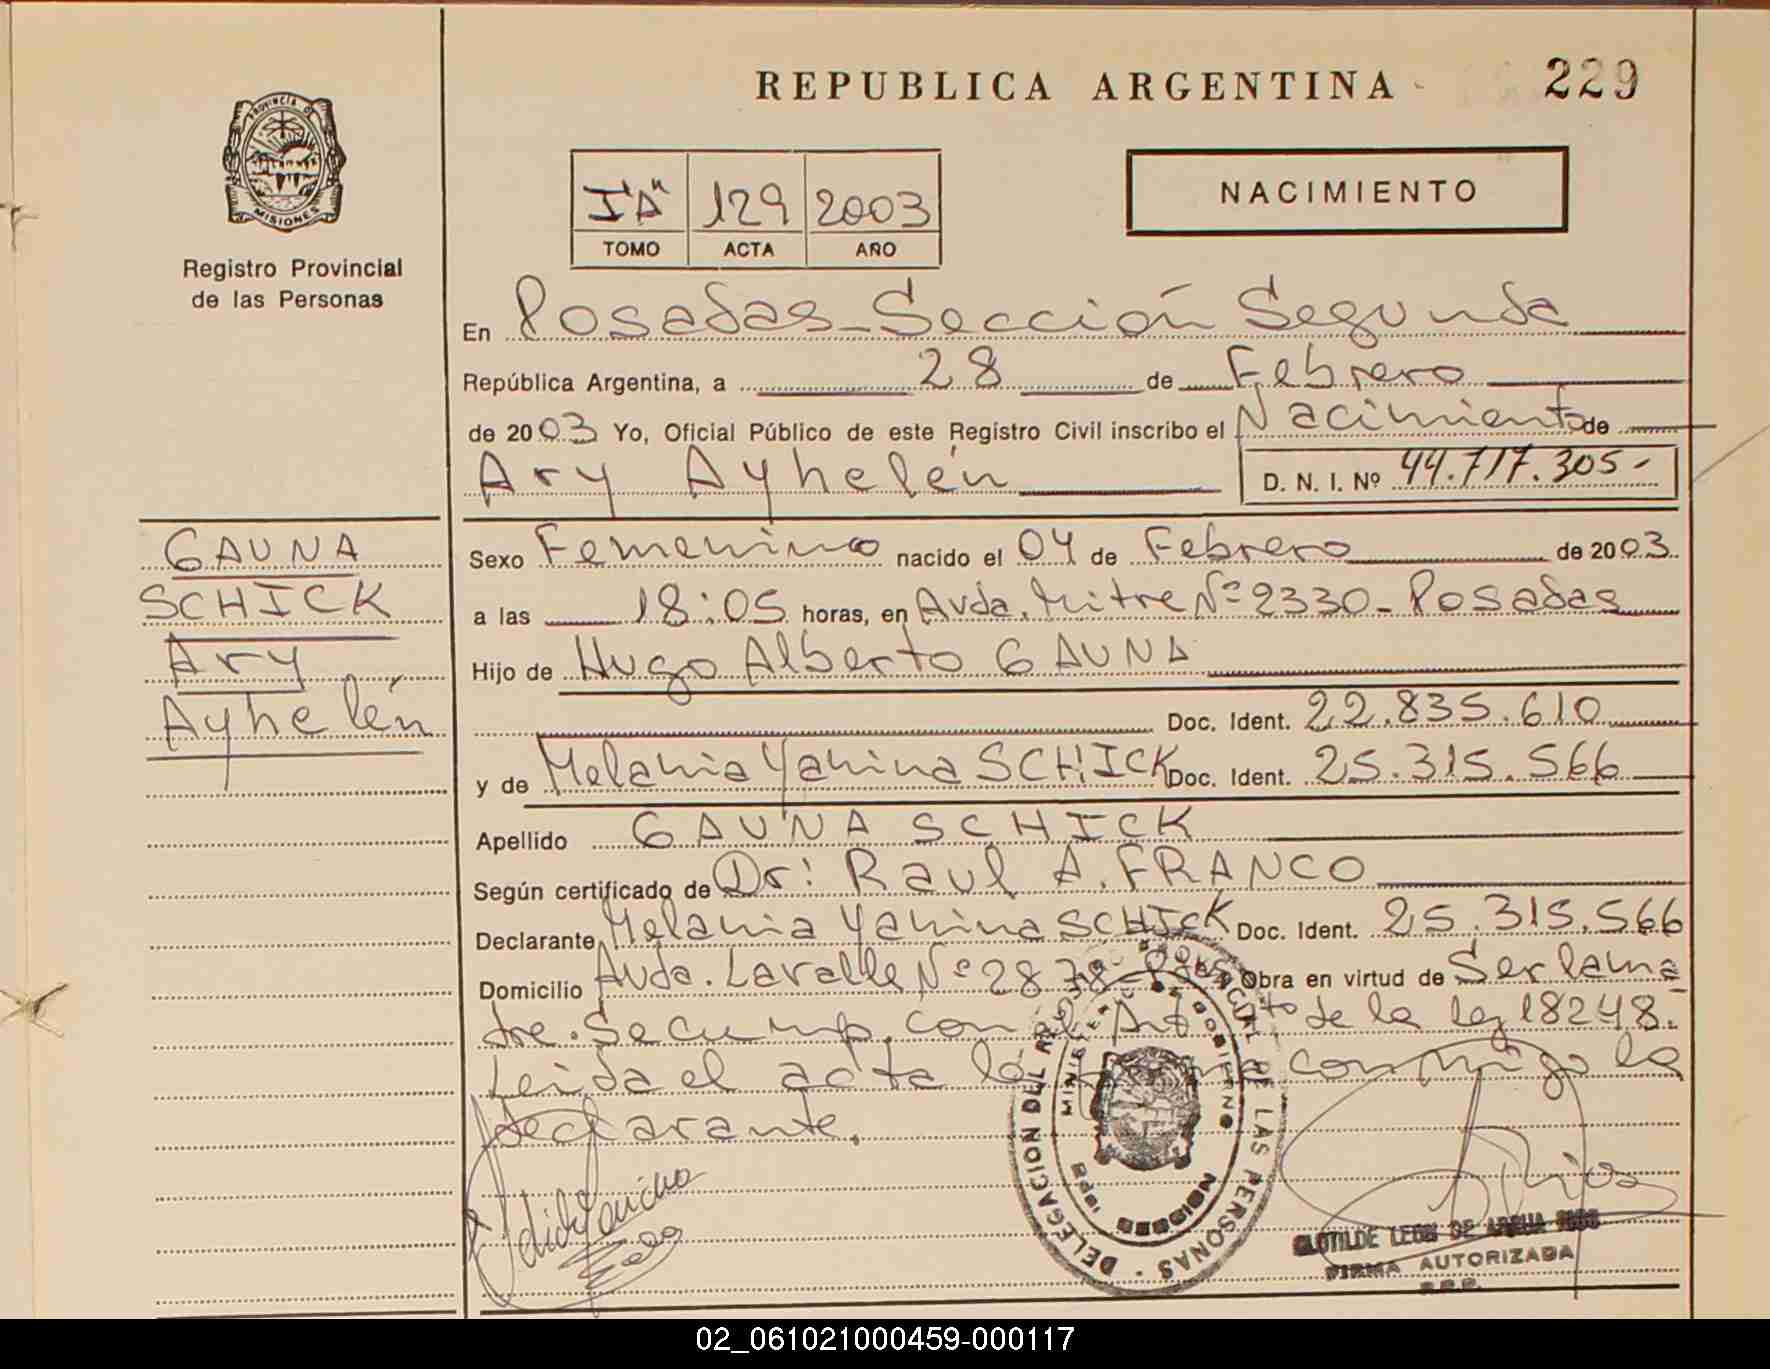 REPUBLICA ARGENTINA
229
PROVINCIA DE
MISIONES
Registro Provincial
de las Personas
I "A" 129 2003
TOMO ACTA AÑO
NACIMIENTO
En Posadas - Sección Segunda
República Argentina, a 28 de Febrero
de 2003 Yo, Oficial Público de este Registro Civil inscribo el Nacimiento de
Ary Ayhelén
D. N. I. Nº 44.717.305-
GAUNA
SCHICK
Ary
Ayhelén
Sexo Femenino nacido el 04 de Febrero de 2003.
a las 18:05 horas, en Avda. Mitre Nº 2330 - Posadas
Hijo de Hugo Alberto GAUNA
Doc. Ident. 22.835.610
y de Melania Yanina SCHICK Doc. Ident. 25.315.566
Apellido GAUNA SCHICK
Según certificado de Dr: Raul A. FRANCO
Declarante Melania Yanina SCHICK Doc. Ident. 25.315.566
Domicilio Avda. Lavalle Nº 2878 - Obra en virtud de Ser la ma
dre. Se cump. con el Art de la ley 18248.-
Leida el acta la conmigo la
declarante.
DELEGACION DEL PROVINCIAL DE LAS PERSONAS
MINISTERIO DE GOBIERNO
MISIONES
CLOTILDE LEON DE
FIRMA AUTORIZADA
02_061021000459-000117